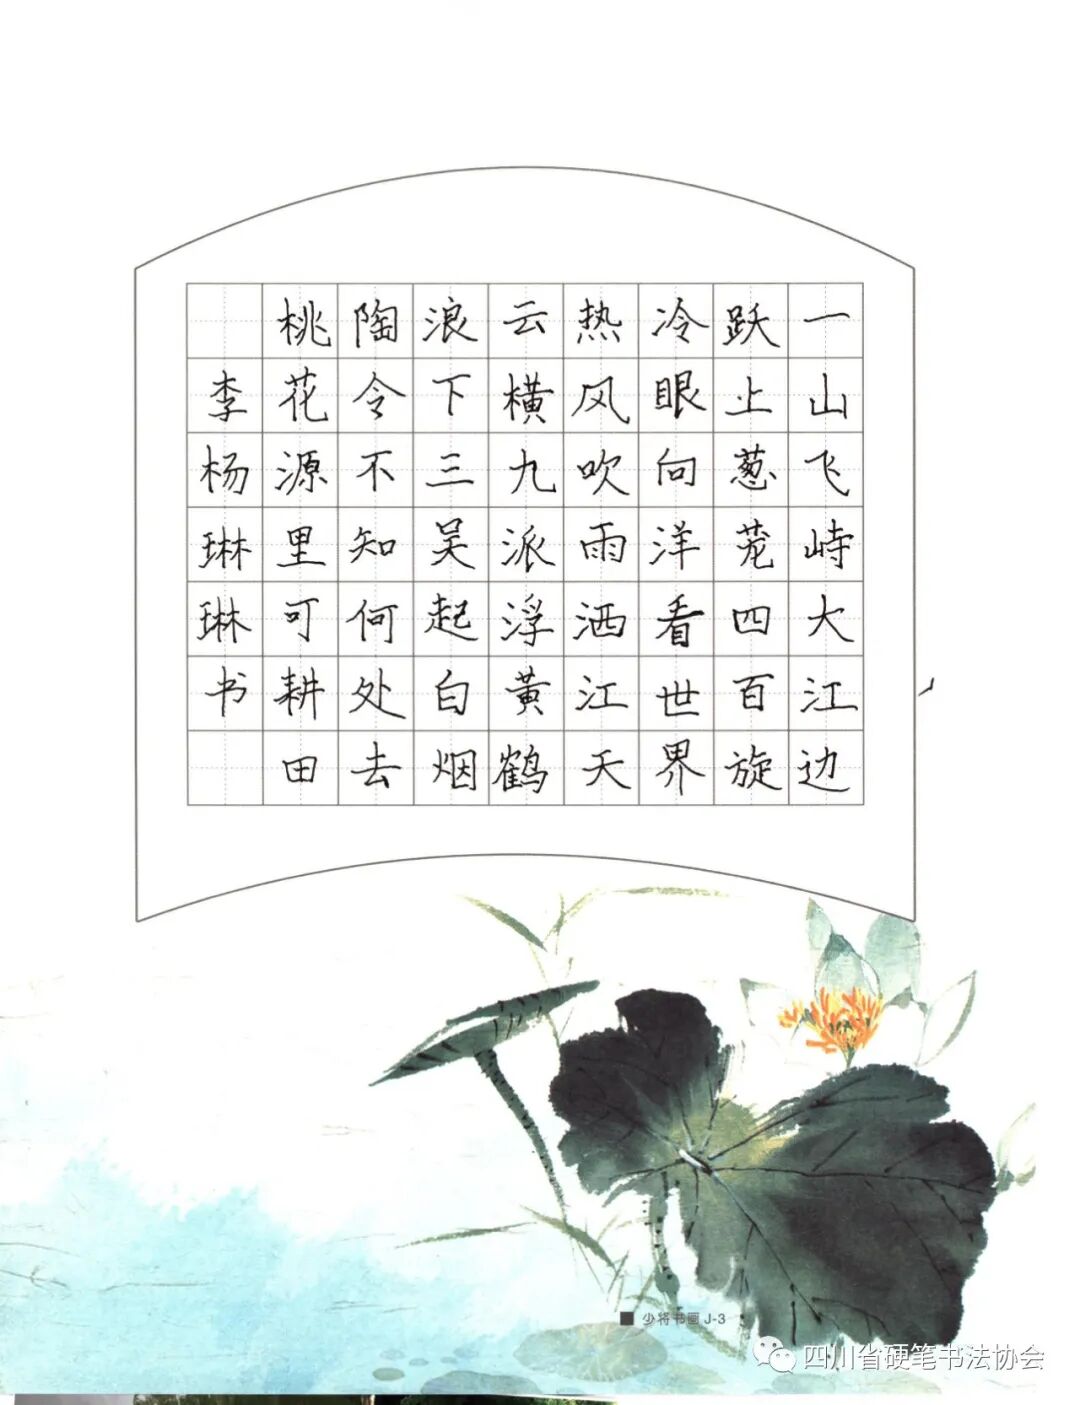 一山飞峙大江边
跃上葱茏四百旋
冷眼向洋看世界
热风吹雨洒江天
云横九派浮黄鹤
浪下三吴起白烟
陶令不知何处去
桃花源里可耕田
李杨琳琳书
少将书画 J-3
四川省硬笔书法协会